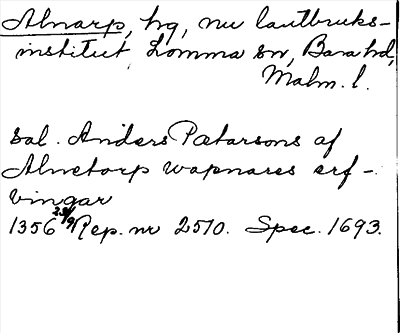 Alnarp, hg, nu lantbruks-
institut Lomma sn, Bara hd,
Malm. l.
sal. Anders Pætarsons af
Alnetorp wapnares erf-
vingar
1356 28/9 Rep. nr 2510. Spec. 1693.